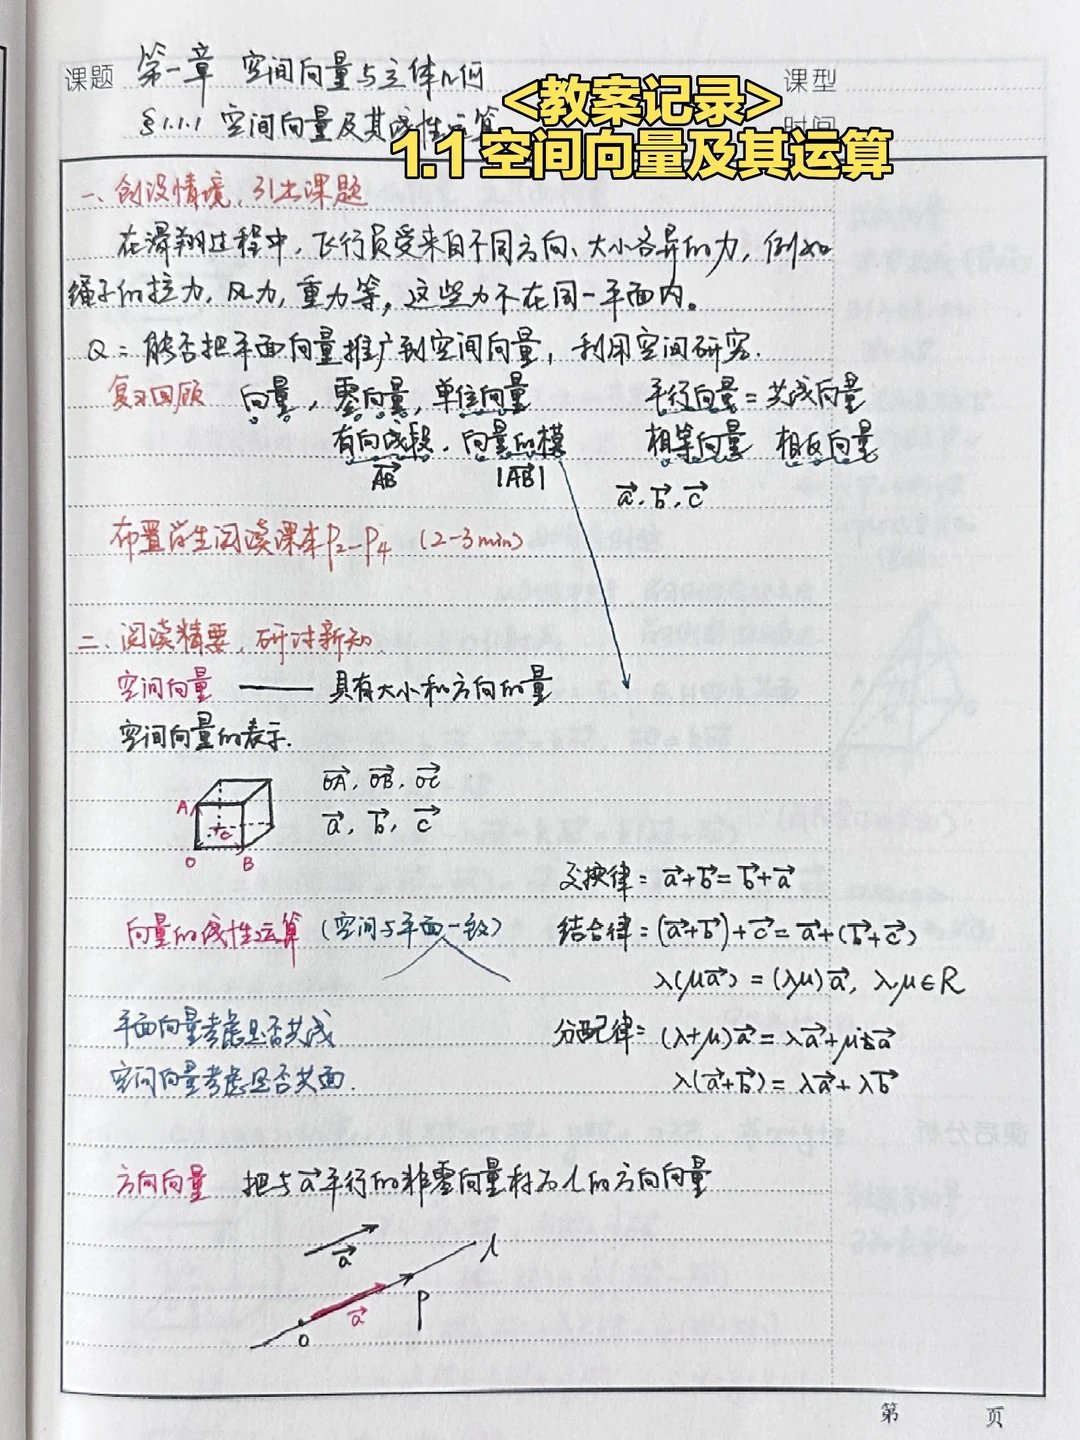 课题 第一章 空间向量与立体几何
<教案记录>
课型
§1.1.1 空间向量及其线性运算
时间
1.1 空间向量及其运算
一、创设情境,引出课题
在滑翔过程中,飞行员受来自不同方向、大小各异的力,例如
绳子的拉力,风力,重力等,这些力不在同一平面内。
Q:能否把平面向量推广到空间向量,利用空间研究.
复习回顾 向量,零向量,单位向量 平行向量=共线向量
有向线段.向量的模 相等向量 相反向量
AB→ |AB→| a→.b→.c→
布置学生阅读课本P2-P4 (2-3min)
二、阅读精要,研讨新知.
空间向量 —— 具有大小和方向的量
空间向量的表示.
OA→, OB→, OC→
a→, b→, c→
A C
O B
交换律:a→+b→=b→+a→
向量的线性运算(空间与平面一致) 结合律:(a→+b→)+c→=a→+(b→+c→)
λ(μa→)=(λμ)a→, λ,μ∈R
平面向量考虑是否共线 分配律:(λ+μ)a→=λa→+μa→
空间向量考虑是否共面. λ(a→+b→)=λa→+λb→
方向向量 把与a→平行的非零向量称为l的方向向量
a→ l
a→ P
O
第 页